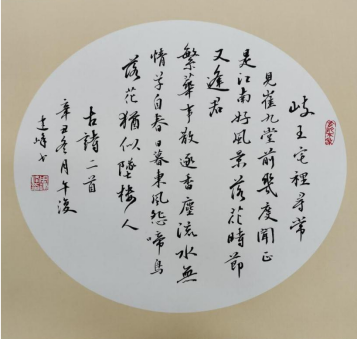 歧王宅裡尋常
見崔九堂前幾度聞正
是江南好風景落花時節
又逢君
繁華事散逐香塵流水無
情草自春日暮東風怨啼鳥
落花猶似墜樓人
古詩二首
辛丑冬月午後